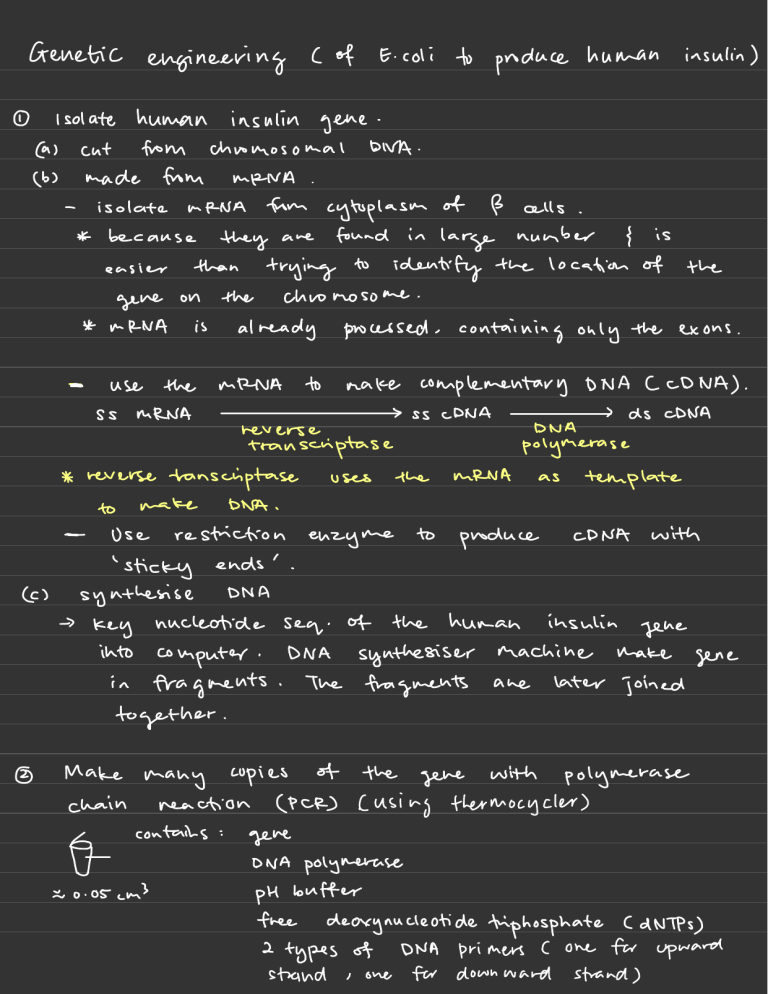 Genetic engineering ( of E.coli to produce human insulin)
① Isolate human insulin gene.
(a) cut from chromosomal DNA.
(b) made from mRNA.
- isolate mRNA from cytoplasm of β cells.
* because they are found in large number & is
easier than trying to identify the location of the
gene on the chromosome.
* mRNA is already processed, containing only the exons.
- use the mRNA to make complementary DNA (cDNA).
ss mRNA → ss cDNA → ds cDNA
reverse transcriptase DNA polymerase
* reverse transcriptase uses the mRNA as template
to make DNA.
- Use restriction enzyme to produce cDNA with
'sticky ends'.
(c) synthesise DNA
→ key nucleotide seq. of the human insulin gene
into computer. DNA synthesiser machine make gene
in fragments. The fragments are later joined
together.
② Make many copies of the gene with polymerase
chain reaction (PCR) (using thermocycler)
contains : gene
DNA polymerase
≈ 0.05 cm³ pH buffer
free deoxynucleotide triphosphate (dNTPs)
2 types of DNA primers ( one for upward
strand, one for downward strand)